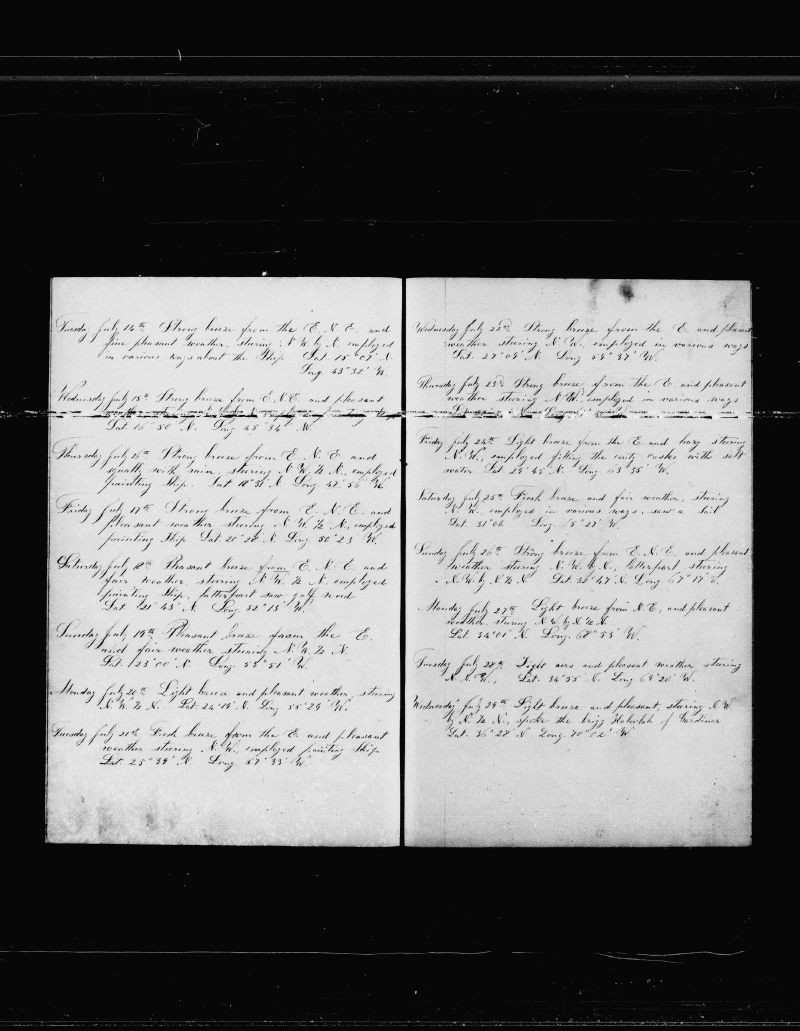 Tuesday July 14th Strong breeze from the E. N. E. and
fine pleasant weather, steering N. W. by N. employed
in various ways about the Ship. Lat. 15° 07' N.
Long. 43° 32' W.
Wednesday July 15th Strong breeze from E. N. E. and pleasant
Lat. 16° 50' N. Long. 45° 34' W.
Thursday July 16th Strong breeze from E. N. E. and
squally with rain, steering N. W. ½ N., employed
painting Ship. Lat 18° 31' N Long. 47° 56' W
Friday July 17th Strong breeze from E. N. E. and
pleasant weather steering N. W. ½ N., employed
painting Ship Lat 20° 28' N. Long. 50° 23' W.
Saturday July 18th Pleasant breeze from E. N. E. and
fair weather, steering N. W. ½ N. employed
painting Ship, latterpart saw gulf weed
Lat 21° 43' N. Long. 52° 15' W.
Sunday July 19th Pleasant breeze from the E.
and fair weather steering N. W. ½ N.
Lat. 23° 00' N. Long. 53° 51' W.
Monday July 20th Light breeze and pleasant weather, steering
N. W. ½ N. Lat. 24° 18' N. Long. 55° 29' W.
Tuesday July 21st Fresh breeze from the E. and pleasant
weather steering N. W. employed painting Ship.
Lat. 25° 39' N Long. 57° 33' W.
Wednesday July 22nd Strong breeze from the E. and pleasant
weather steering N. W. employed in various ways
Lat. 27° 09' N. Long 59° 37' W.
Thursday July 23d Strong breeze from the E. and pleasant
weather steering N. W. employed in various ways
Friday July 24th Light breeze from the E and hazy steering
N. W., employed filling the emty casks with salt
water Lat 29° 45' N. Long 63° 35' W.
Saturday July 25th Fresh breeze and fair weather, steering
N. W. employed in various ways, saw a Sail
Lat. 31° 06' Long. 65° 27' W.
Sunday July 26th Strong breeze from E. N. E. and pleasant
weather steering N. W. by N., latterpart steering
N. W. by N. ½ N. Lat 32° 47' N. Long 67° 17' W.
Monday July 27th Light breeze from N. E., and pleasant
weather, steering N. W. by N. ½ N.
Lat. 34° 01' N. Long. 68° 53' W.
Tuesday July 28th Light airs and pleasant weather steering
N. N. W., Lat. 34° 55' N. Long 69° 26' W.
Wednesday July 29th Light breeze and pleasant, steering N. W.
by N. ½ N., spoke the brigg of Gardiner
Lat. 36° 28' N Long. 70° 02' W.